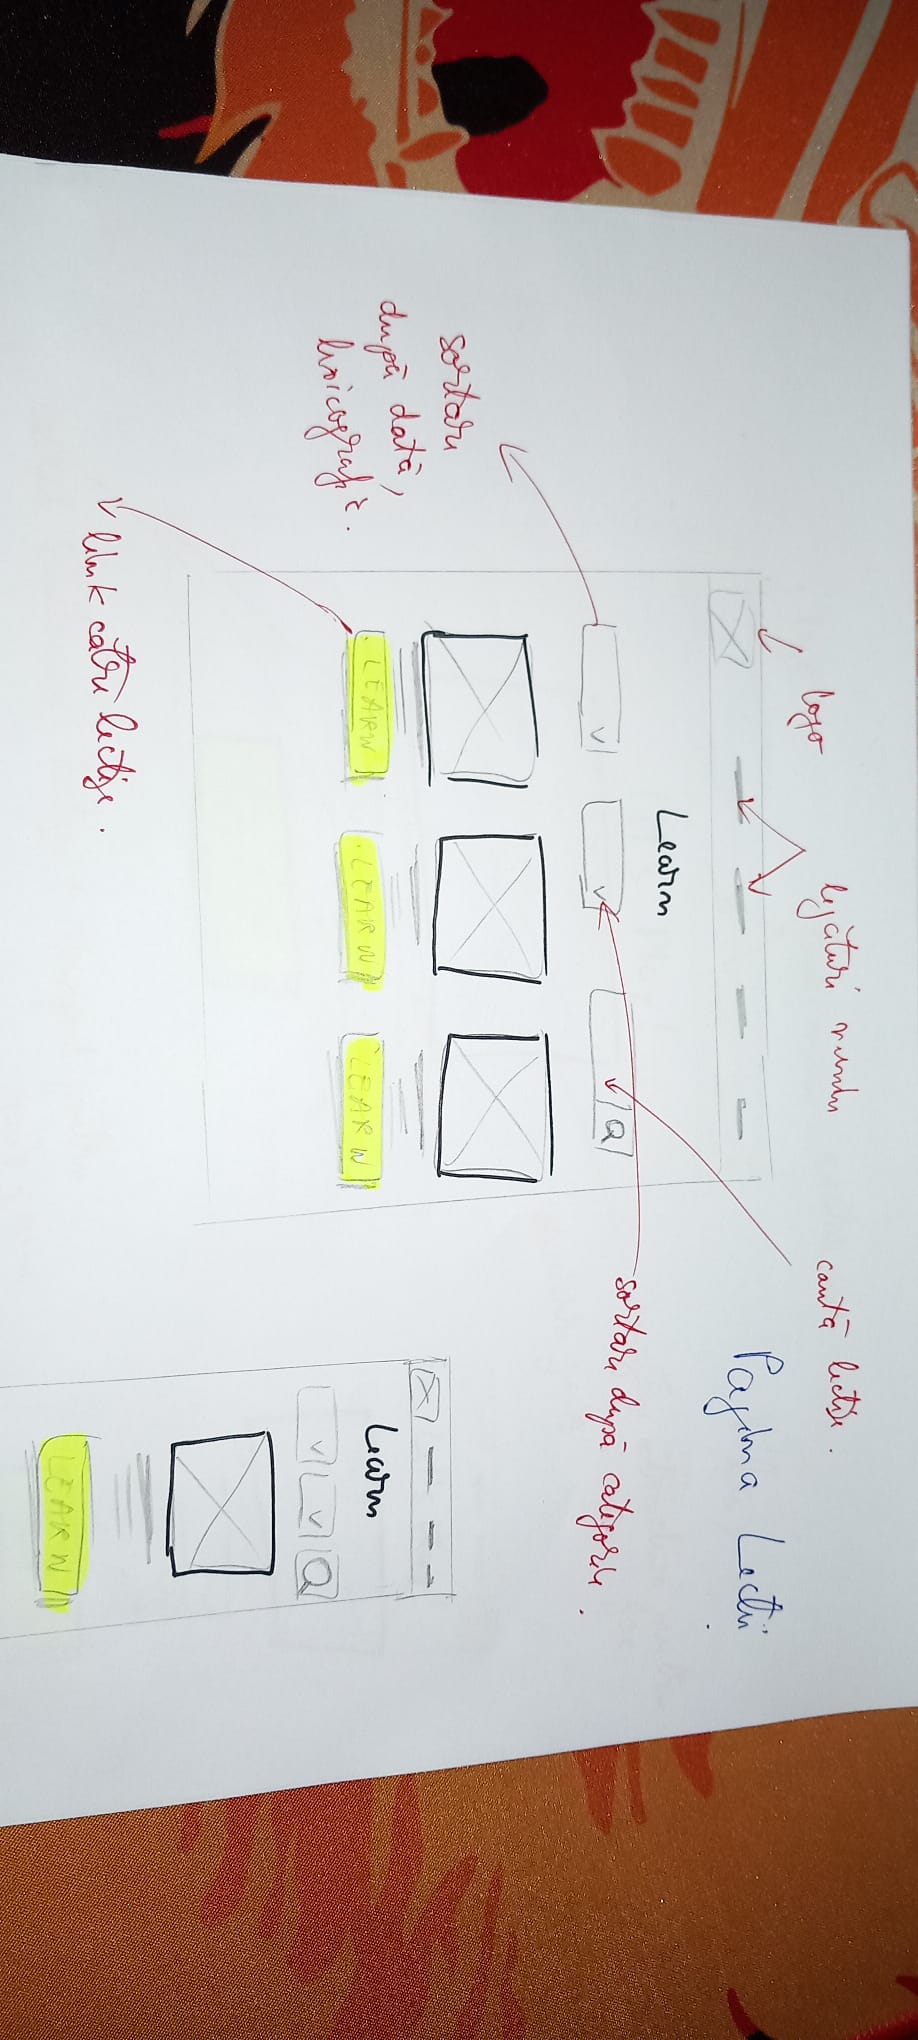 logo
legături meniu
caută lecție.
Pagina Lecții
Learn
sortare
după dată,
lexicografic.
sortare după categorie.
LEARN
LEARN
LEARN
link către lecție.
Learn
LEARN